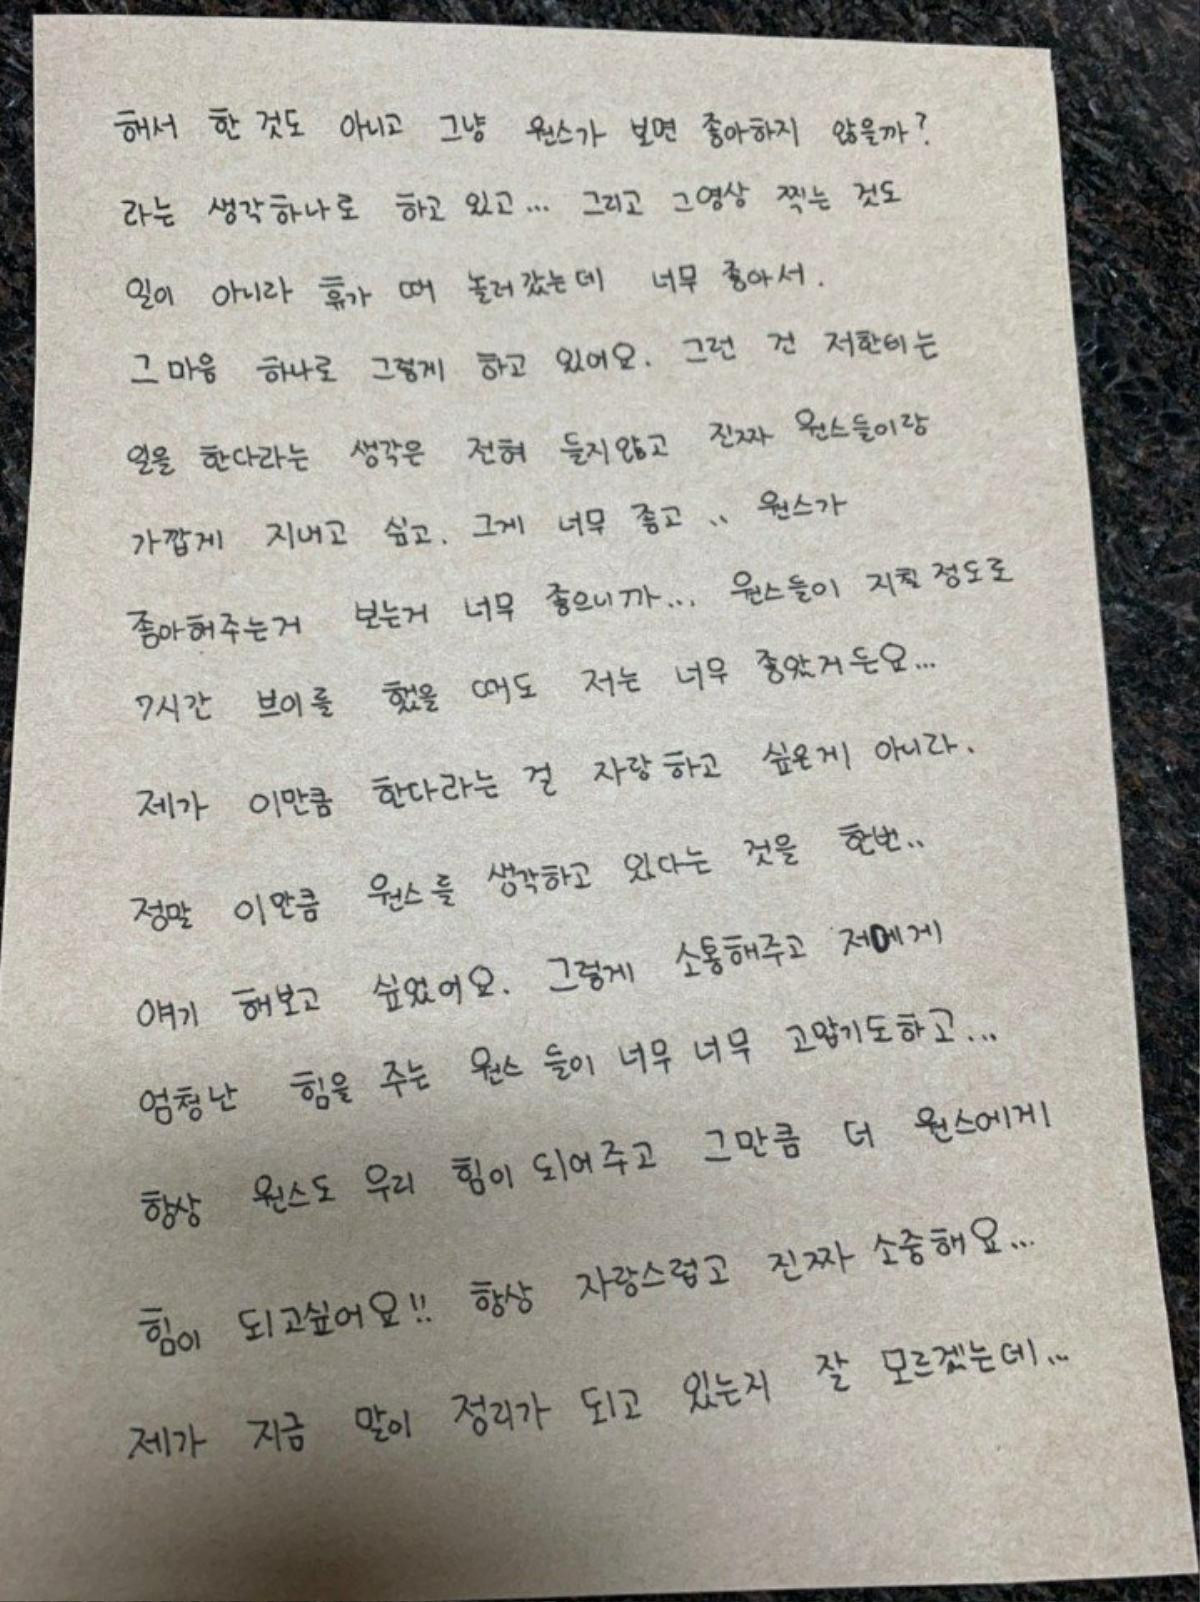 해서 한 것도 아니고 그냥 원스가 보면 좋아하지 않을까?
라는 생각하나로 하고 있고... 그리고 그영상 찍는 것도
일이 아니라 휴가 때 놀러갔는데 너무 좋아서.
그 마음 하나로 그렇게 하고 있어요. 그런 건 저한테는
일을 한다라는 생각은 전혀 들지않고 진짜 원스들이랑
가깝게 지내고 싶고. 그게 너무 좋고 .. 원스가
좋아해주는거 보는거 너무 좋으니까... 원스들이 지칠 정도로
7시간 브이를 했을 때도 저는 너무 좋았거든요...
제가 이만큼 한다라는 걸 자랑하고 싶은게 아니라.
정말 이만큼 원스를 생각하고 있다는 것을 한번..
얘기 해보고 싶었어요. 그렇게 소통해주고 저에게
엄청난 힘을 주는 원스 들이 너무 너무 고맙기도하고...
항상 원스도 우리 힘이 되어주고 그만큼 더 원스에게
힘이 되고싶어요!! 항상 자랑스럽고 진짜 소중해요...
제가 지금 말이 정리가 되고 있는지 잘 모르겠는데...